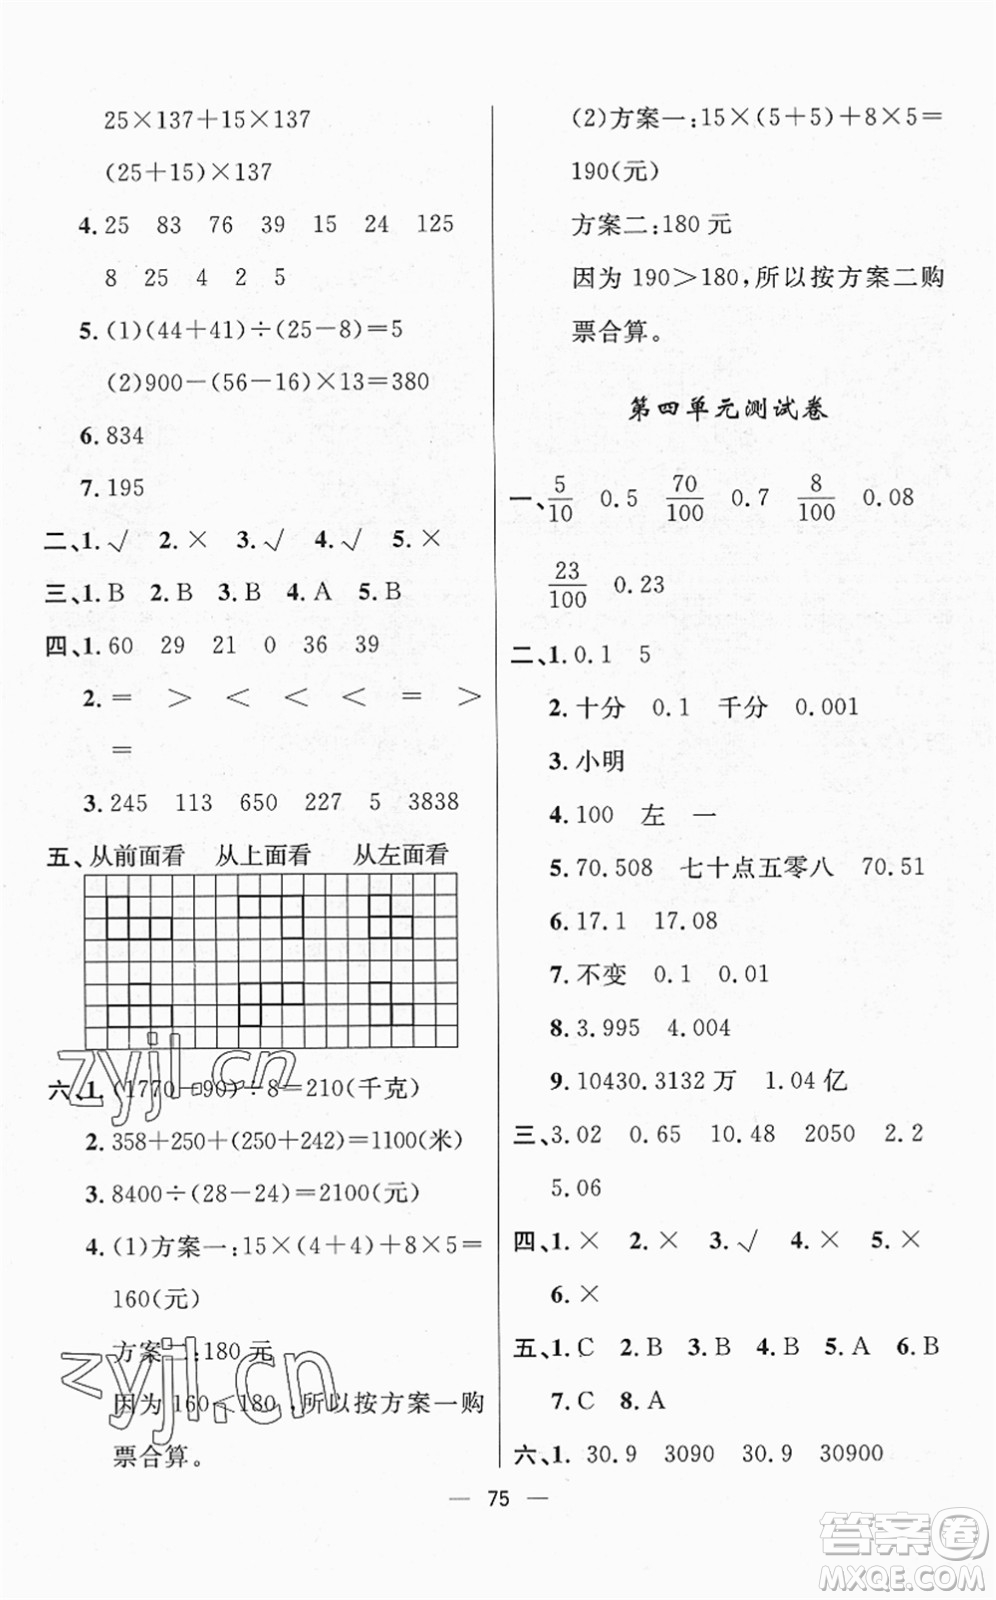 25×137+15×137
(25+15)×137
4. 25 83 76 39 15 24 125
8 25 4 2 5
5. (1)(44+41)÷(25-8)=5
(2)900-(56-16)×13=380
6. 834
7. 195
二、1. √ 2. × 3. √ 4. √ 5. ×
三、1. B 2. B 3. B 4. A 5. B
四、1. 60 29 21 0 36 39
2. = > < < = >
=
3. 245 113 650 227 5 3838
五、从前面看 从上面看 从左面看
六、1. (1770-90)÷8=210(千克)
2. 358+250+(250+242)=1100(米)
3. 8400÷(28-24)=2100(元)
4. (1)方案一:15×(4+4)+8×5=
160(元)
方案二:180元
因为160<180,所以按方案一购
票合算。
(2)方案一:15×(5+5)+8×5=
190(元)
方案二:180元
因为190>180,所以按方案二购
票合算。
第四单元测试卷
一、5/10 0.5 70/100 0.7 8/100 0.08
23/100 0.23
二、1. 0.1 5
2. 十分 0.1 千分 0.001
3. 小明
4. 100 左 一
5. 70.508 七十点五零八 70.51
6. 17.1 17.08
7. 不变 0.1 0.01
8. 3.995 4.004
9. 10430.3132万 1.04亿
三、3.02 0.65 10.48 2050 2.2
5.06
四、1. × 2. × 3. √ 4. × 5. ×
6. ×
五、1. C 2. B 3. B 4. B 5. A 6. B
7. C 8. A
六、1. 30.9 3090 30.9 30900
— 75 —
zyjl.cn
zyjl.cn
答案卷
MXQE.COM